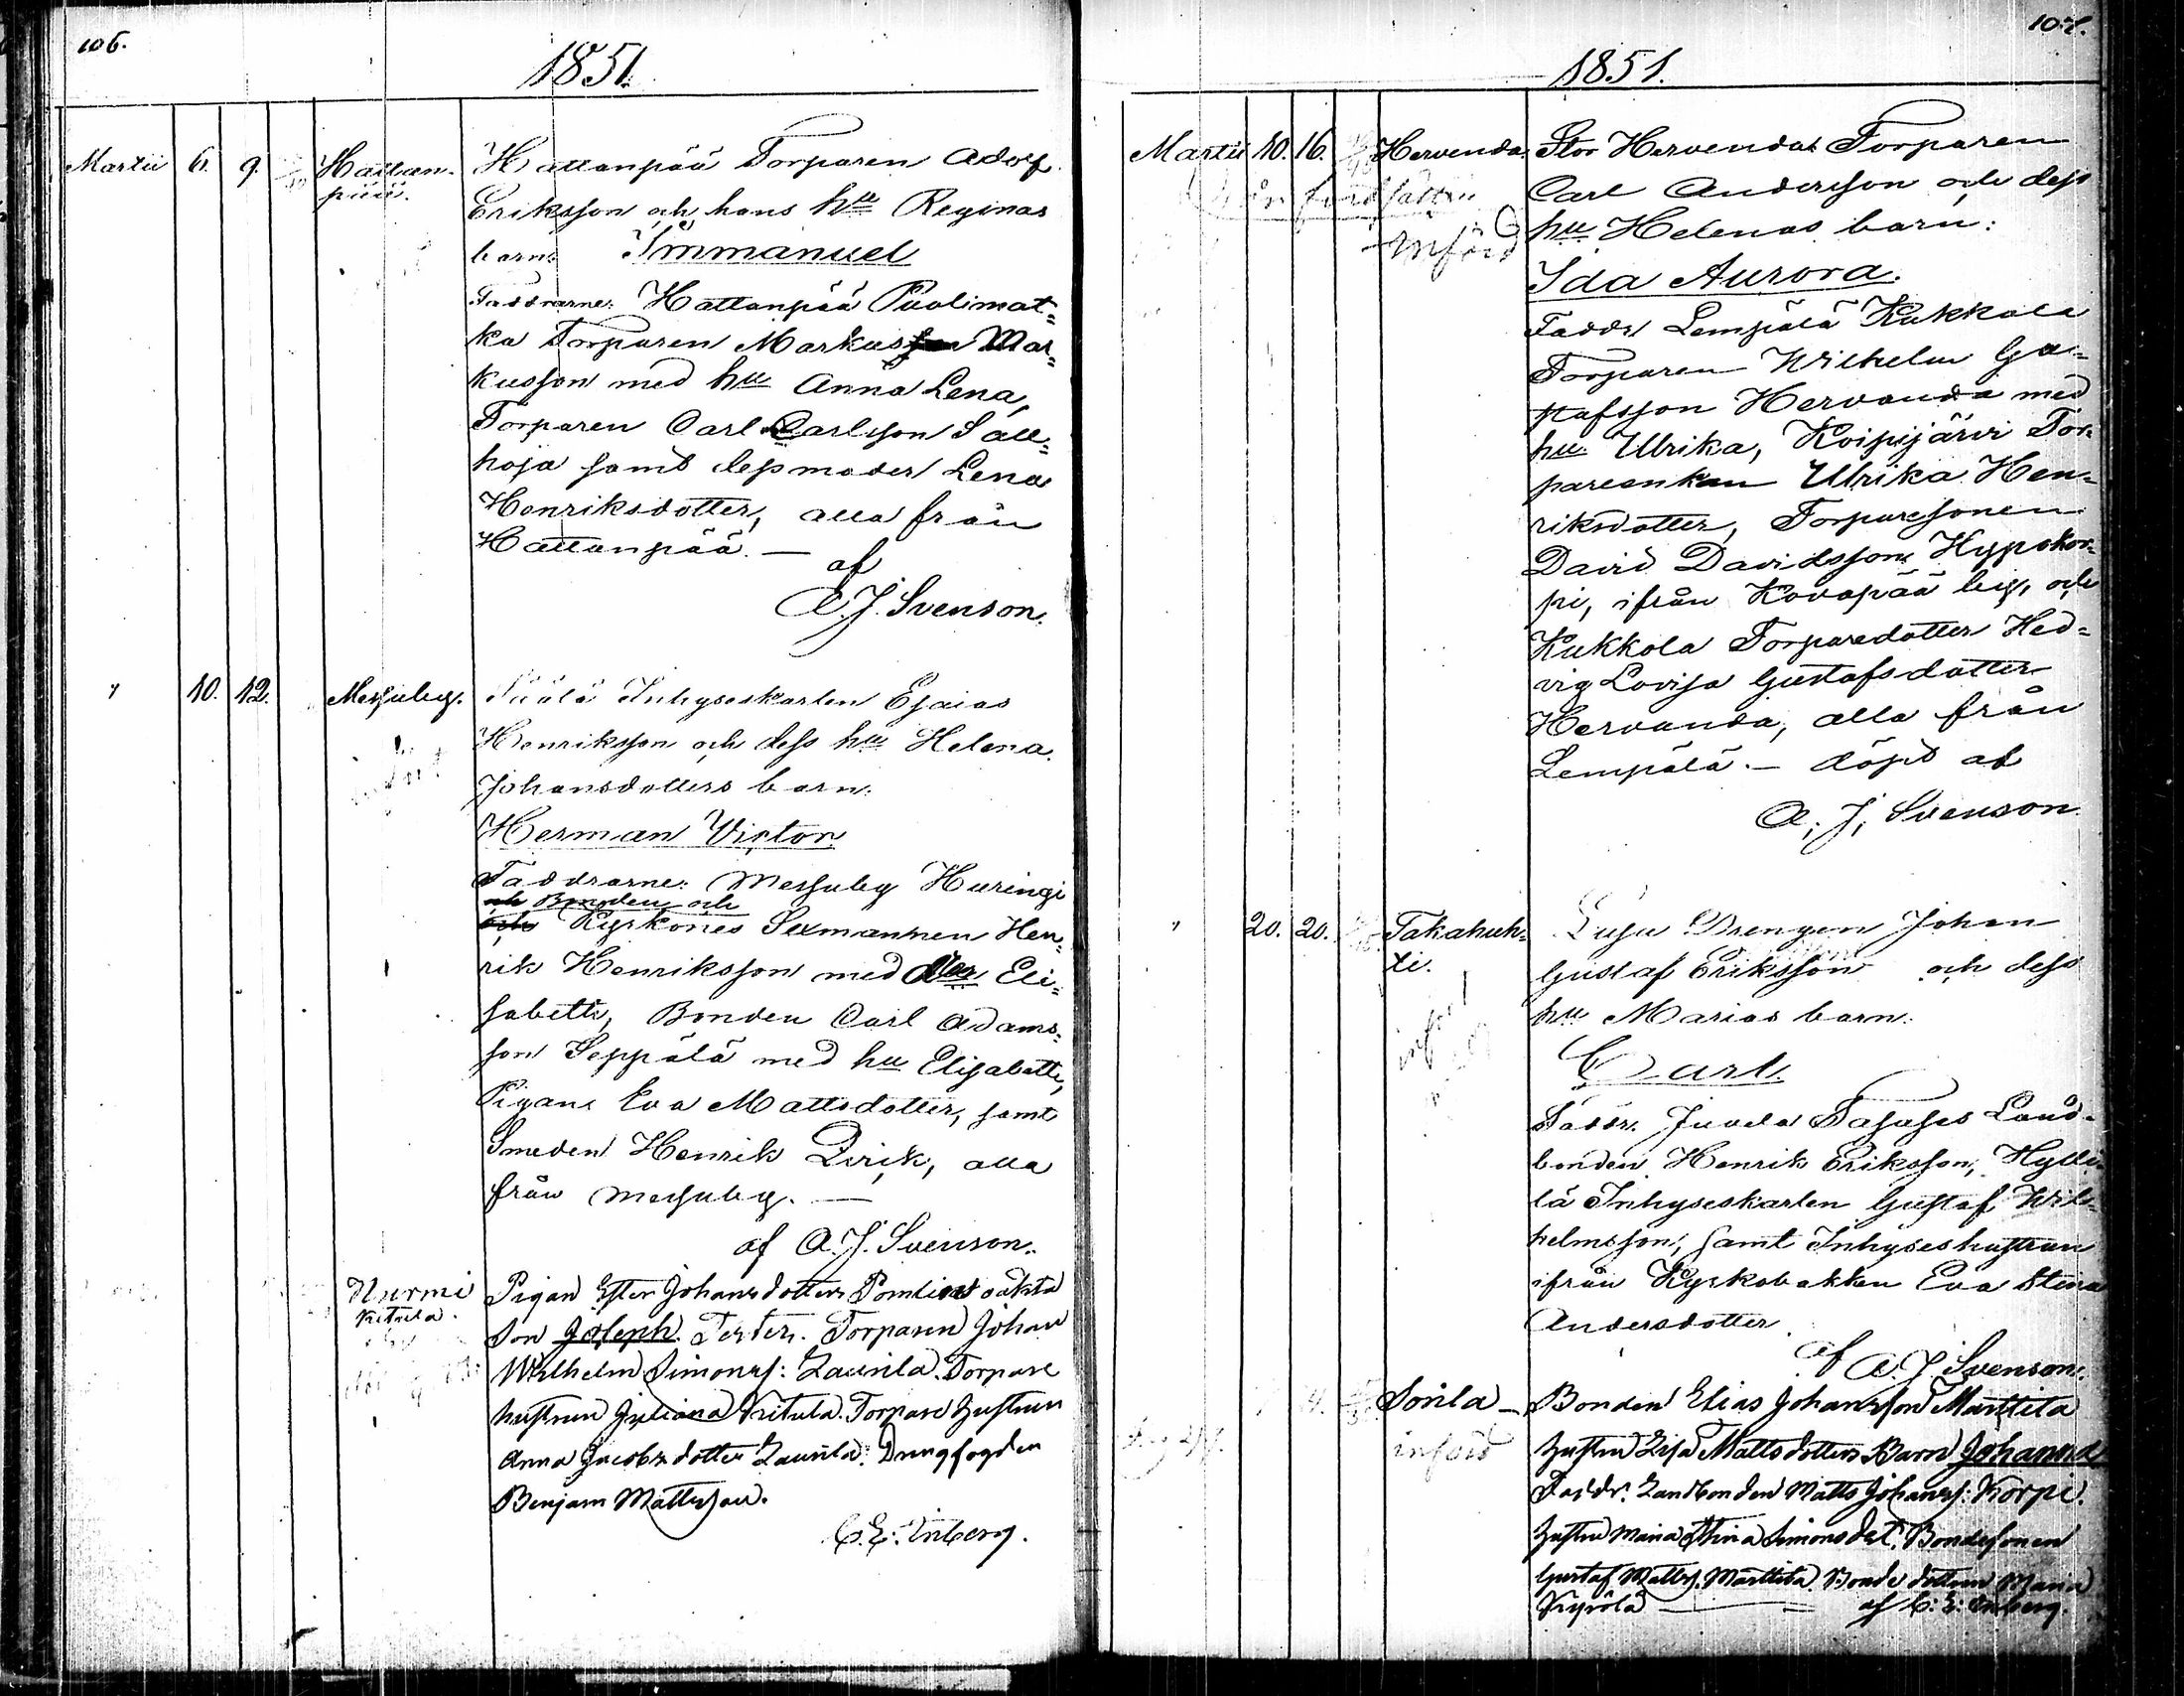 106.
1851.
Martii 6. 9. Hattan-
pää.
Hattanpää Torparen Adolf
Eriksson och hans hu Reginas
barn: Immanuel
Faddrarne: Hattanpää Puolimat=
ka Torparen Markus Mar=
kusson med hu Anna Lena,
Torparen Carl Carlsson
samt dess moder Lena
Henriksdotter, alla från
Hattanpää. — af
A. J. Svenson.
" 10. 12. Messuby.
Inhyseskarlen Esaias
Henriksson och dess hu Helena
Johansdotters barn:
Herman Victor
Faddrarne: Messuby Huringi
Bonden och
och Kyrkones Sexmannen Hen=
rik Henriksson med Eli=
sabeth, Bonden Carl Adams=
son Seppälä med hu Elisabeth,
Pigan Eva Mattsdotter, samt
Smeden Henrik Qvick, alla
från Messuby. —
af A. J. Svenson.
Nurmi
Kitula.
Pigan Ester Johansdotters oäkta
Son Joseph. Torparen Johan
Wilhelm Simonss: Laurila. Torpare
hustrun Juliana Kitula. Torpare hustrun
Anna Jacobsdotter Laurila. Drengfogden
Benjam Mattsson.
C. E. Enberg.
107.
1851.
Martii 10. 16. Hervenda.
införd
Stor Hervendas Torparen
Carl Andersson och dess
hu Helenas barn:
Ida Aurora.
Faddr Lempälä Kukkola
Torparen Wilhelm Gu=
stafsson Hervanda med
hu Ulrika, Koipijärvi Tor=
pareenkan Ulrika Hen=
riksdotter, Torparesonen
David Davidsson Hyppskor=
pi, ifrån Kovapää by, och
Kukkola Torparedotter Hed=
vig Lovisa Gustafsdotter
Hervanda, alla från
Lempälä. — döpt af
A. J. Svenson.
" 20. 20. Takahuh=
ti.
Drengen Johan
Gustaf Eriksson och dess
hu Marias barn:
Carl.
Faddr. Juvela Land=
bonden Henrik Eriksson,
Inhyseskarlen Gustaf Wil=
helmsson, samt Inhyseshustrun
ifrån Kyrkobakken Eva Stina
Andersdotter
af A. J. Svenson.
Sorila —
införd
Bonden Elias Johansson Marttila
hustru Lisa Mattsdotters Barn Johanna
Faddr. Landbonden Matts Johanss: Korpi.
hustru Maria Stina Simonsdot. Bondesonen
Gustaf Mattss. Marttila Bondedottern Maria
Kyrölä — af C: E: Enberg.